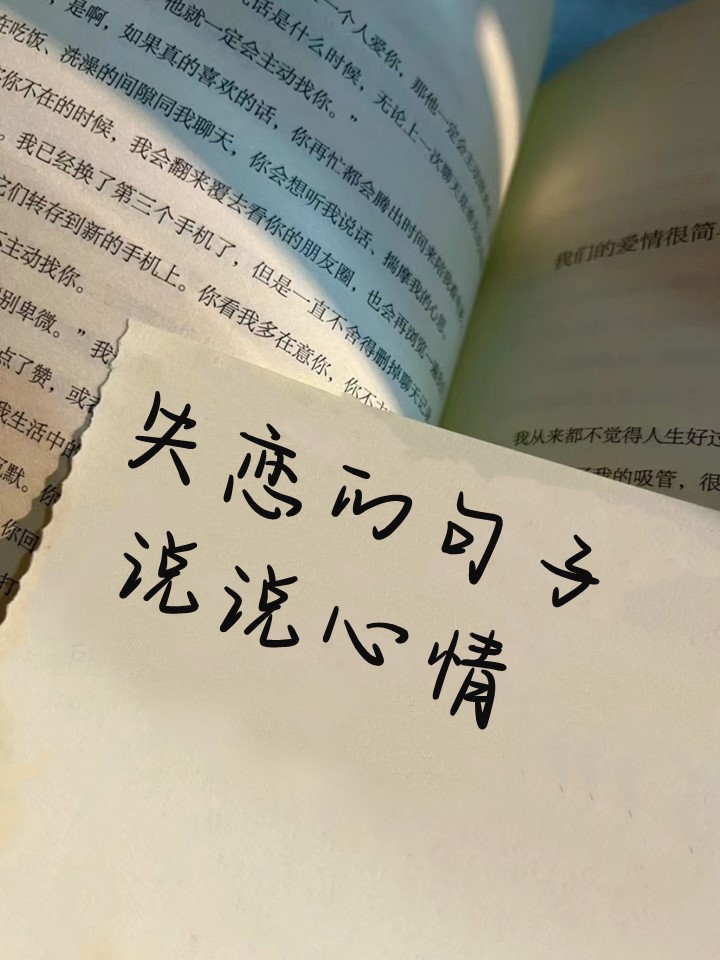 一个人爱你，那他一定会主动
说话是什么时候，无论上一次聊天
他就一定会主动找你。”
，是啊，如果真的喜欢的话，你再忙都会腾出时间来陪我
在吃饭、洗澡的间隙同我聊天，你会想听我说话、揣摩我的心思。
你不在的时候，我会翻来覆去看你的朋友圈，也会再浏览一遍
。我已经换了第三个手机了，但是一直不舍得删掉聊天记录
它们转存到新的手机上。你看我多在意你，你不
主动找你。
别卑微。”我
点了赞，或
我生活中的
沉默。你
你回
打
我们的爱情很简
我从来都不觉得人生好过
我的吸管，很
失恋的句子
说说心情